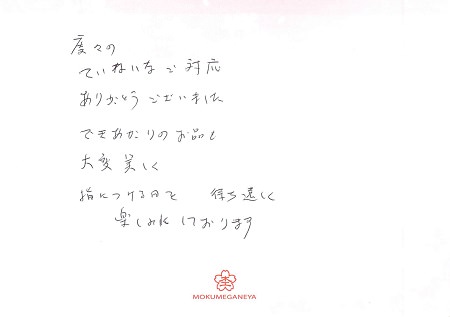 度々の
ていねいなご対応
ありがとうございました
できあがりのお品も
大変美しく
指につける日を 待ち遠しく
楽しみにしております
MOKUMEGANEYA